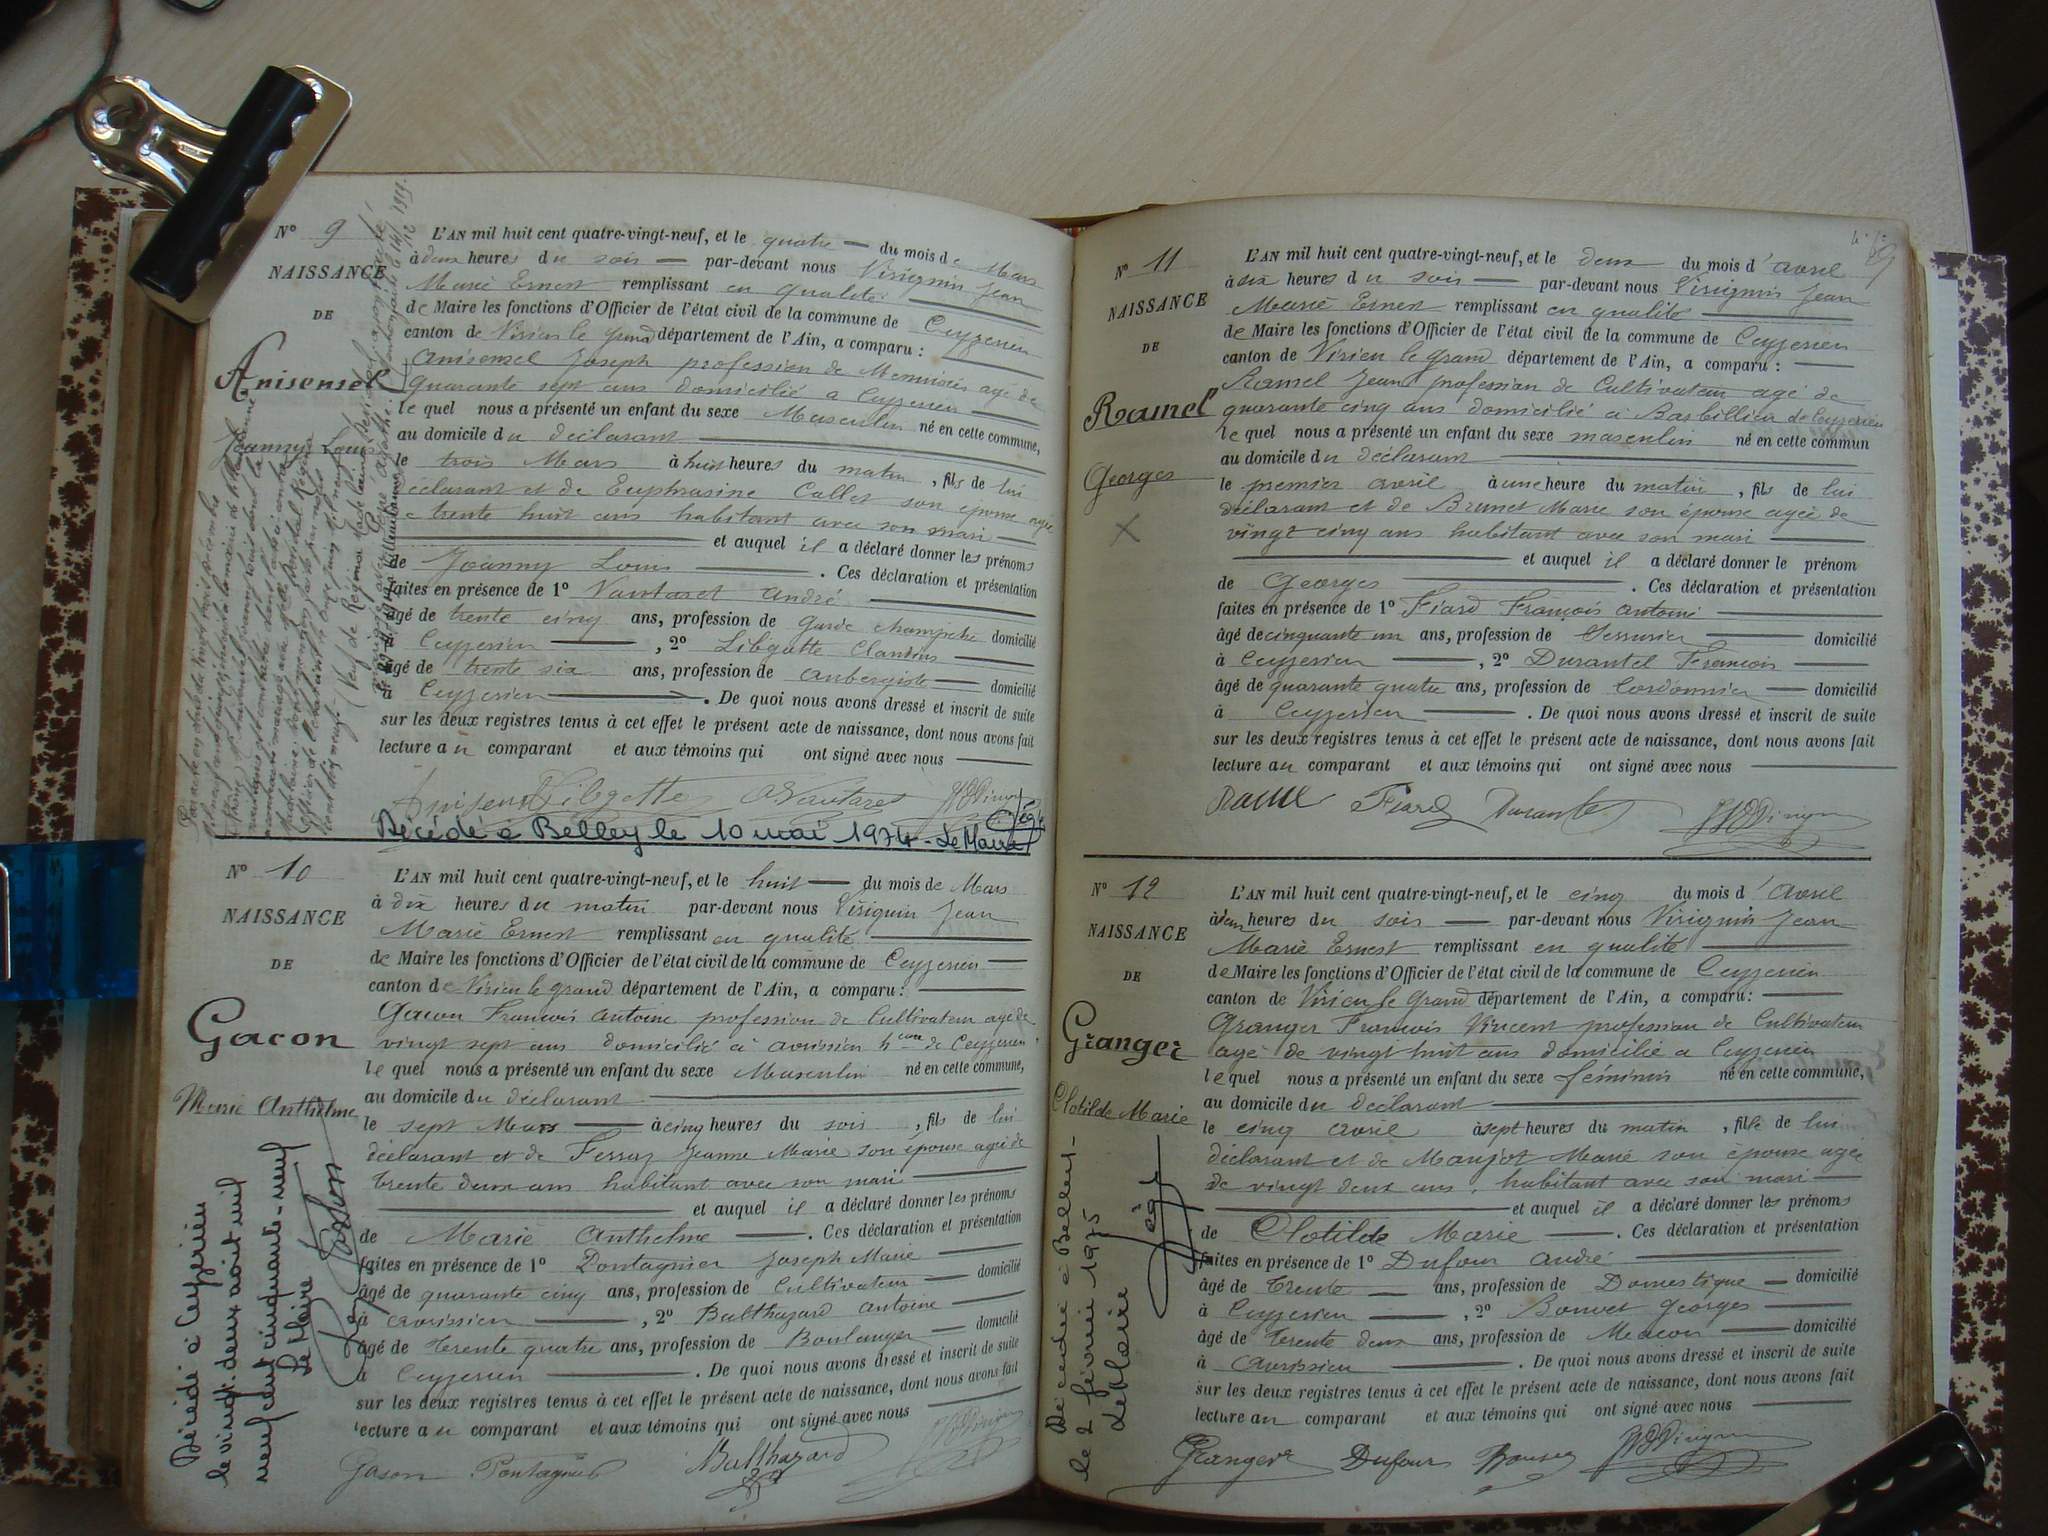 Nº 9
NAISSANCE
DE
Anisensel
Joanny Louis
L'AN mil huit cent quatre-vingt-neuf, et le quatre du mois de Mars
à deux heures du soir par-devant nous Viriguin Jean
Marie Ernest remplissant en qualité
de Maire les fonctions d'Officier de l'état civil de la commune de Ceyzerieu
canton de Virieu le Grand département de l'Ain, a comparu :
Anisensel Joseph profession de Menuisier agé de
quarante sept ans domicilié a Ceyzerieu
lequel nous a présenté un enfant du sexe Masculin né en cette commune,
au domicile du déclarant
le trois Mars à huit heures du matin, fils de lui
déclarant et de Euphrasine Callet son épouse agée
de trente huit ans habitant avec son mari
et auquel il a déclaré donner les prénoms
de Joanny Louis. Ces déclaration et présentation
faites en présence de 1º Vantaret André
âgé de trente cinq ans, profession de Garde champetre domicilié
à Ceyzerieu, 2º Libgotte Claudius
âgé de trente six ans, profession de aubergiste domicilié
à Ceyzerieu. De quoi nous avons dressé et inscrit de suite
sur les deux registres tenus à cet effet le présent acte de naissance, dont nous avons fait
lecture au comparant et aux témoins qui ont signé avec nous
Décédé à Belley le 10 mai 1974 - Le Maire
Nº 10
NAISSANCE
DE
Gacon
Marie Anthelme
Décédé à Ceyzérieu
le vingt deux août mil
neuf cent cinquante-neuf
Le Maire
L'AN mil huit cent quatre-vingt-neuf, et le huit du mois de Mars
à dix heures du matin par-devant nous Viriguin Jean
Marie Ernest remplissant en qualité
de Maire les fonctions d'Officier de l'état civil de la commune de Ceyzerieu
canton de Virieu le grand département de l'Ain, a comparu :
Gacon François Antoine profession de Cultivateur agé de
vingt sept ans domicilié à avrissieu hcau de Ceyzerieu
lequel nous a présenté un enfant du sexe Masculin né en cette commune,
au domicile du déclarant
le sept Mars à cinq heures du soir, fils de lui
déclarant et de Ferraz Jeanne Marie son épouse agé de
trente deux ans habitant avec son mari
et auquel il a déclaré donner les prénoms
de Marie Anthelme. Ces déclaration et présentation
faites en présence de 1º Pontagnier Joseph Marie
âgé de quarante cinq ans, profession de Cultivateur domicilié
à avrissieu, 2º Balthazard Antoine
âgé de trente quatre ans, profession de Boulanger domicilié
à Ceyzerieu. De quoi nous avons dressé et inscrit de suite
sur les deux registres tenus à cet effet le présent acte de naissance, dont nous avons fait
lecture au comparant et aux témoins qui ont signé avec nous
Gacon Pontagnier Balthazard
Nº 11
NAISSANCE
DE
Ramel
Georges
L'AN mil huit cent quatre-vingt-neuf, et le deux du mois d'avril
à six heures du soir par-devant nous Viriguin Jean
Marie Ernest remplissant en qualité
de Maire les fonctions d'Officier de l'état civil de la commune de Ceyzerieu
canton de Virieu le grand département de l'Ain, a comparu :
Ramel Jean profession de Cultivateur agé de
quarante cinq ans domicilié à Barbillieu de Ceyzerieu
lequel nous a présenté un enfant du sexe masculin né en cette commun
au domicile du déclarant
le premier avril à une heure du matin, fils de lui
déclarant et de Brunet Marie son épouse agée de
vingt cinq ans habitant avec son mari
et auquel il a déclaré donner le prénom
de Georges. Ces déclaration et présentation
faites en présence de 1º Fiard François antoine
âgé de cinquante un ans, profession de Serrurier domicilié
à Ceyzerieu, 2º Durantel François
âgé de quarante quatre ans, profession de Cordonnier domicilié
à Ceyzerieu. De quoi nous avons dressé et inscrit de suite
sur les deux registres tenus à cet effet le présent acte de naissance, dont nous avons fait
lecture au comparant et aux témoins qui ont signé avec nous
Ramel Fiard Durantel
Nº 12
NAISSANCE
DE
Granger
Clotilde Marie
Décédée à Belley
le 2 février 1975
Le Maire
L'AN mil huit cent quatre-vingt-neuf, et le cinq du mois d'avril
à deux heures du soir par-devant nous Viriguin Jean
Marie Ernest remplissant en qualité
de Maire les fonctions d'Officier de l'état civil de la commune de Ceyzerieu
canton de Virieu le Grand département de l'Ain, a comparu :
Granger François Vincent profession de Cultivateur
agé de vingt huit ans domicilié a Ceyzerieu
lequel nous a présenté un enfant du sexe féminin né en cette commune,
au domicile du déclarant
le cinq avril à sept heures du matin, fille de lui
déclarant et de Manjot Marie son épouse agée
de vingt deux ans, habitant avec son mari
et auquel il a déclaré donner les prénoms
de Clotilde Marie. Ces déclaration et présentation
faites en présence de 1º Dufour André
âgé de trente ans, profession de Domestique domicilié
à Ceyzerieu, 2º Bonvet Georges
âgé de trente deux ans, profession de Macon domicilié
à avrissieu. De quoi nous avons dressé et inscrit de suite
sur les deux registres tenus à cet effet le présent acte de naissance, dont nous avons fait
lecture au comparant et aux témoins qui ont signé avec nous
Granger Dufour